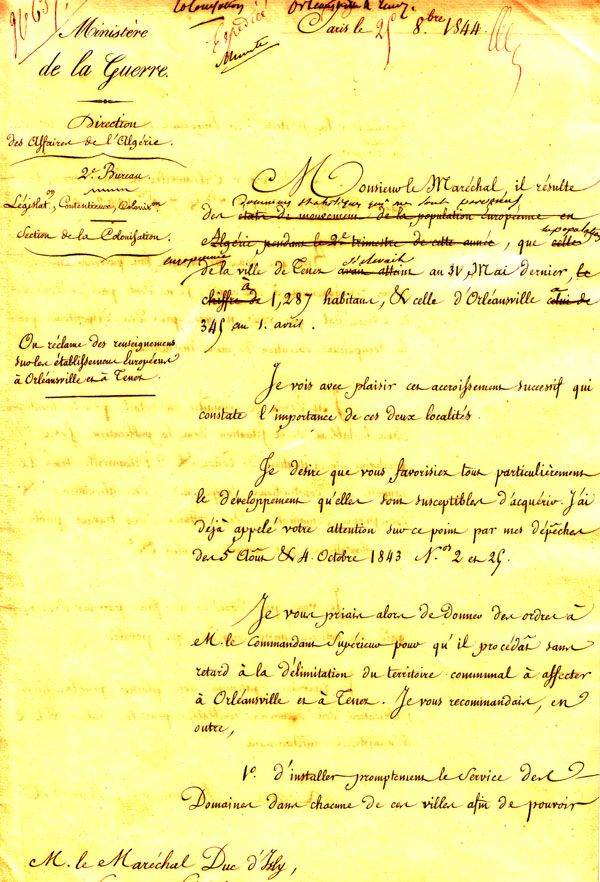 Colonisation Orléansville & Tenez.
Expédiée
Minute
Paris le 25 8.bre 1844.
Ministère
de la Guerre.
Direction
des Affaires de l'Algérie.
2.e Bureau.
Législat.on, Contentieux, Colonis.on
Section de la Colonisation.
On réclame des renseignemens
sur les établissemens Européens
à Orléansville et à Tenez.
Monsieur le Maréchal, il résulte
documens statistiques qui me sont parvenus
des états de mouvement de la population Européenne en
Algérie pendant le 2.e trimestre de cette année, que celle
la population
européenne s'élevait
de la ville de Tenez avait atteint au 31 Mai dernier, le
à à
chiffre de 1,287 habitans, & celle d'Orléansville celui de
345 au 1. avril.
Je vois avec plaisir cet accroissement successif qui
constate l'importance de ces deux localités.
Je désire que vous favorisiez tout particulièrement
le développement qu'elles sont susceptibles d'acquérir. J'ai
déjà appelé votre attention sur ce point par mes dépêches
des 5 Août & 4 Octobre 1843 N.os 2 et 25.
Je vous priais alors de donner des ordres à
M. le Commandant Supérieur pour qu'il procédât sans
retard à la délimitation du territoire communal à affecter
à Orléansville et à Tenez. Je vous recommandais, en
outre,
1.o d'installer promptement le Service des
Domaines dans chacune de ces villes afin de pouvoir
M. le Maréchal Duc d'Isly,